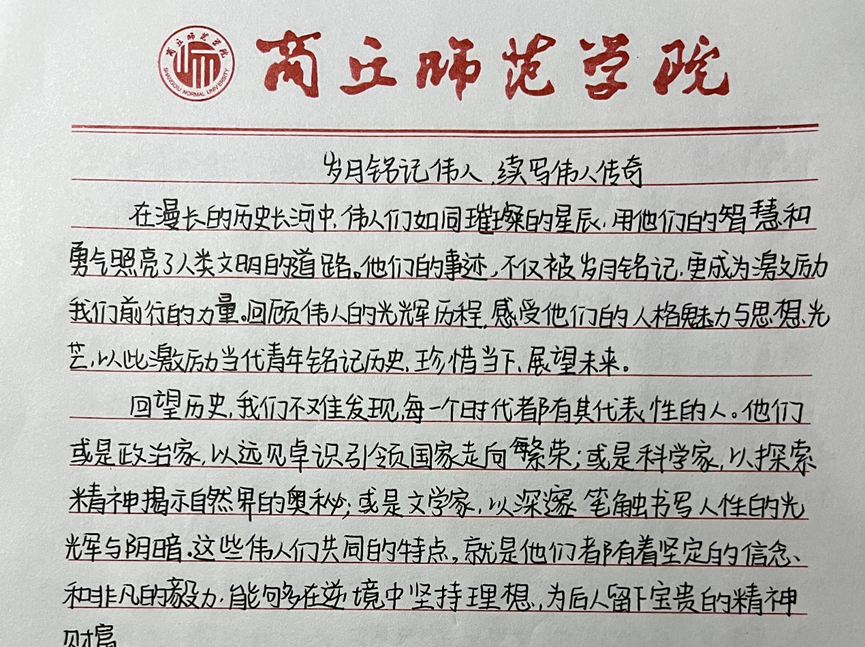 商丘师范学院
商丘师范学院
SHANGQIU NORMAL UNIVERSITY
岁月铭记伟人,续写伟人传奇
在漫长的历史长河中,伟人们如同璀璨的星辰,用他们的智慧和
勇气照亮了人类文明的道路。他们的事迹,不仅被岁月铭记,更成为激励
我们前行的力量。回顾伟人的光辉历程,感受他们的人格魅力与思想光
芒,以此激励当代青年铭记历史,珍惜当下,展望未来。
回望历史,我们不难发现,每一个时代都有其代表性的人。他们
或是政治家,以远见卓识引领国家走向繁荣;或是科学家,以探索
精神揭示自然界的奥秘;或是文学家,以深邃笔触书写人性的光
辉与阴暗。这些伟人们共同的特点,就是他们都有着坚定的信念、
和非凡的毅力,能够在逆境中坚持理想,为后人留下宝贵的精神
财富